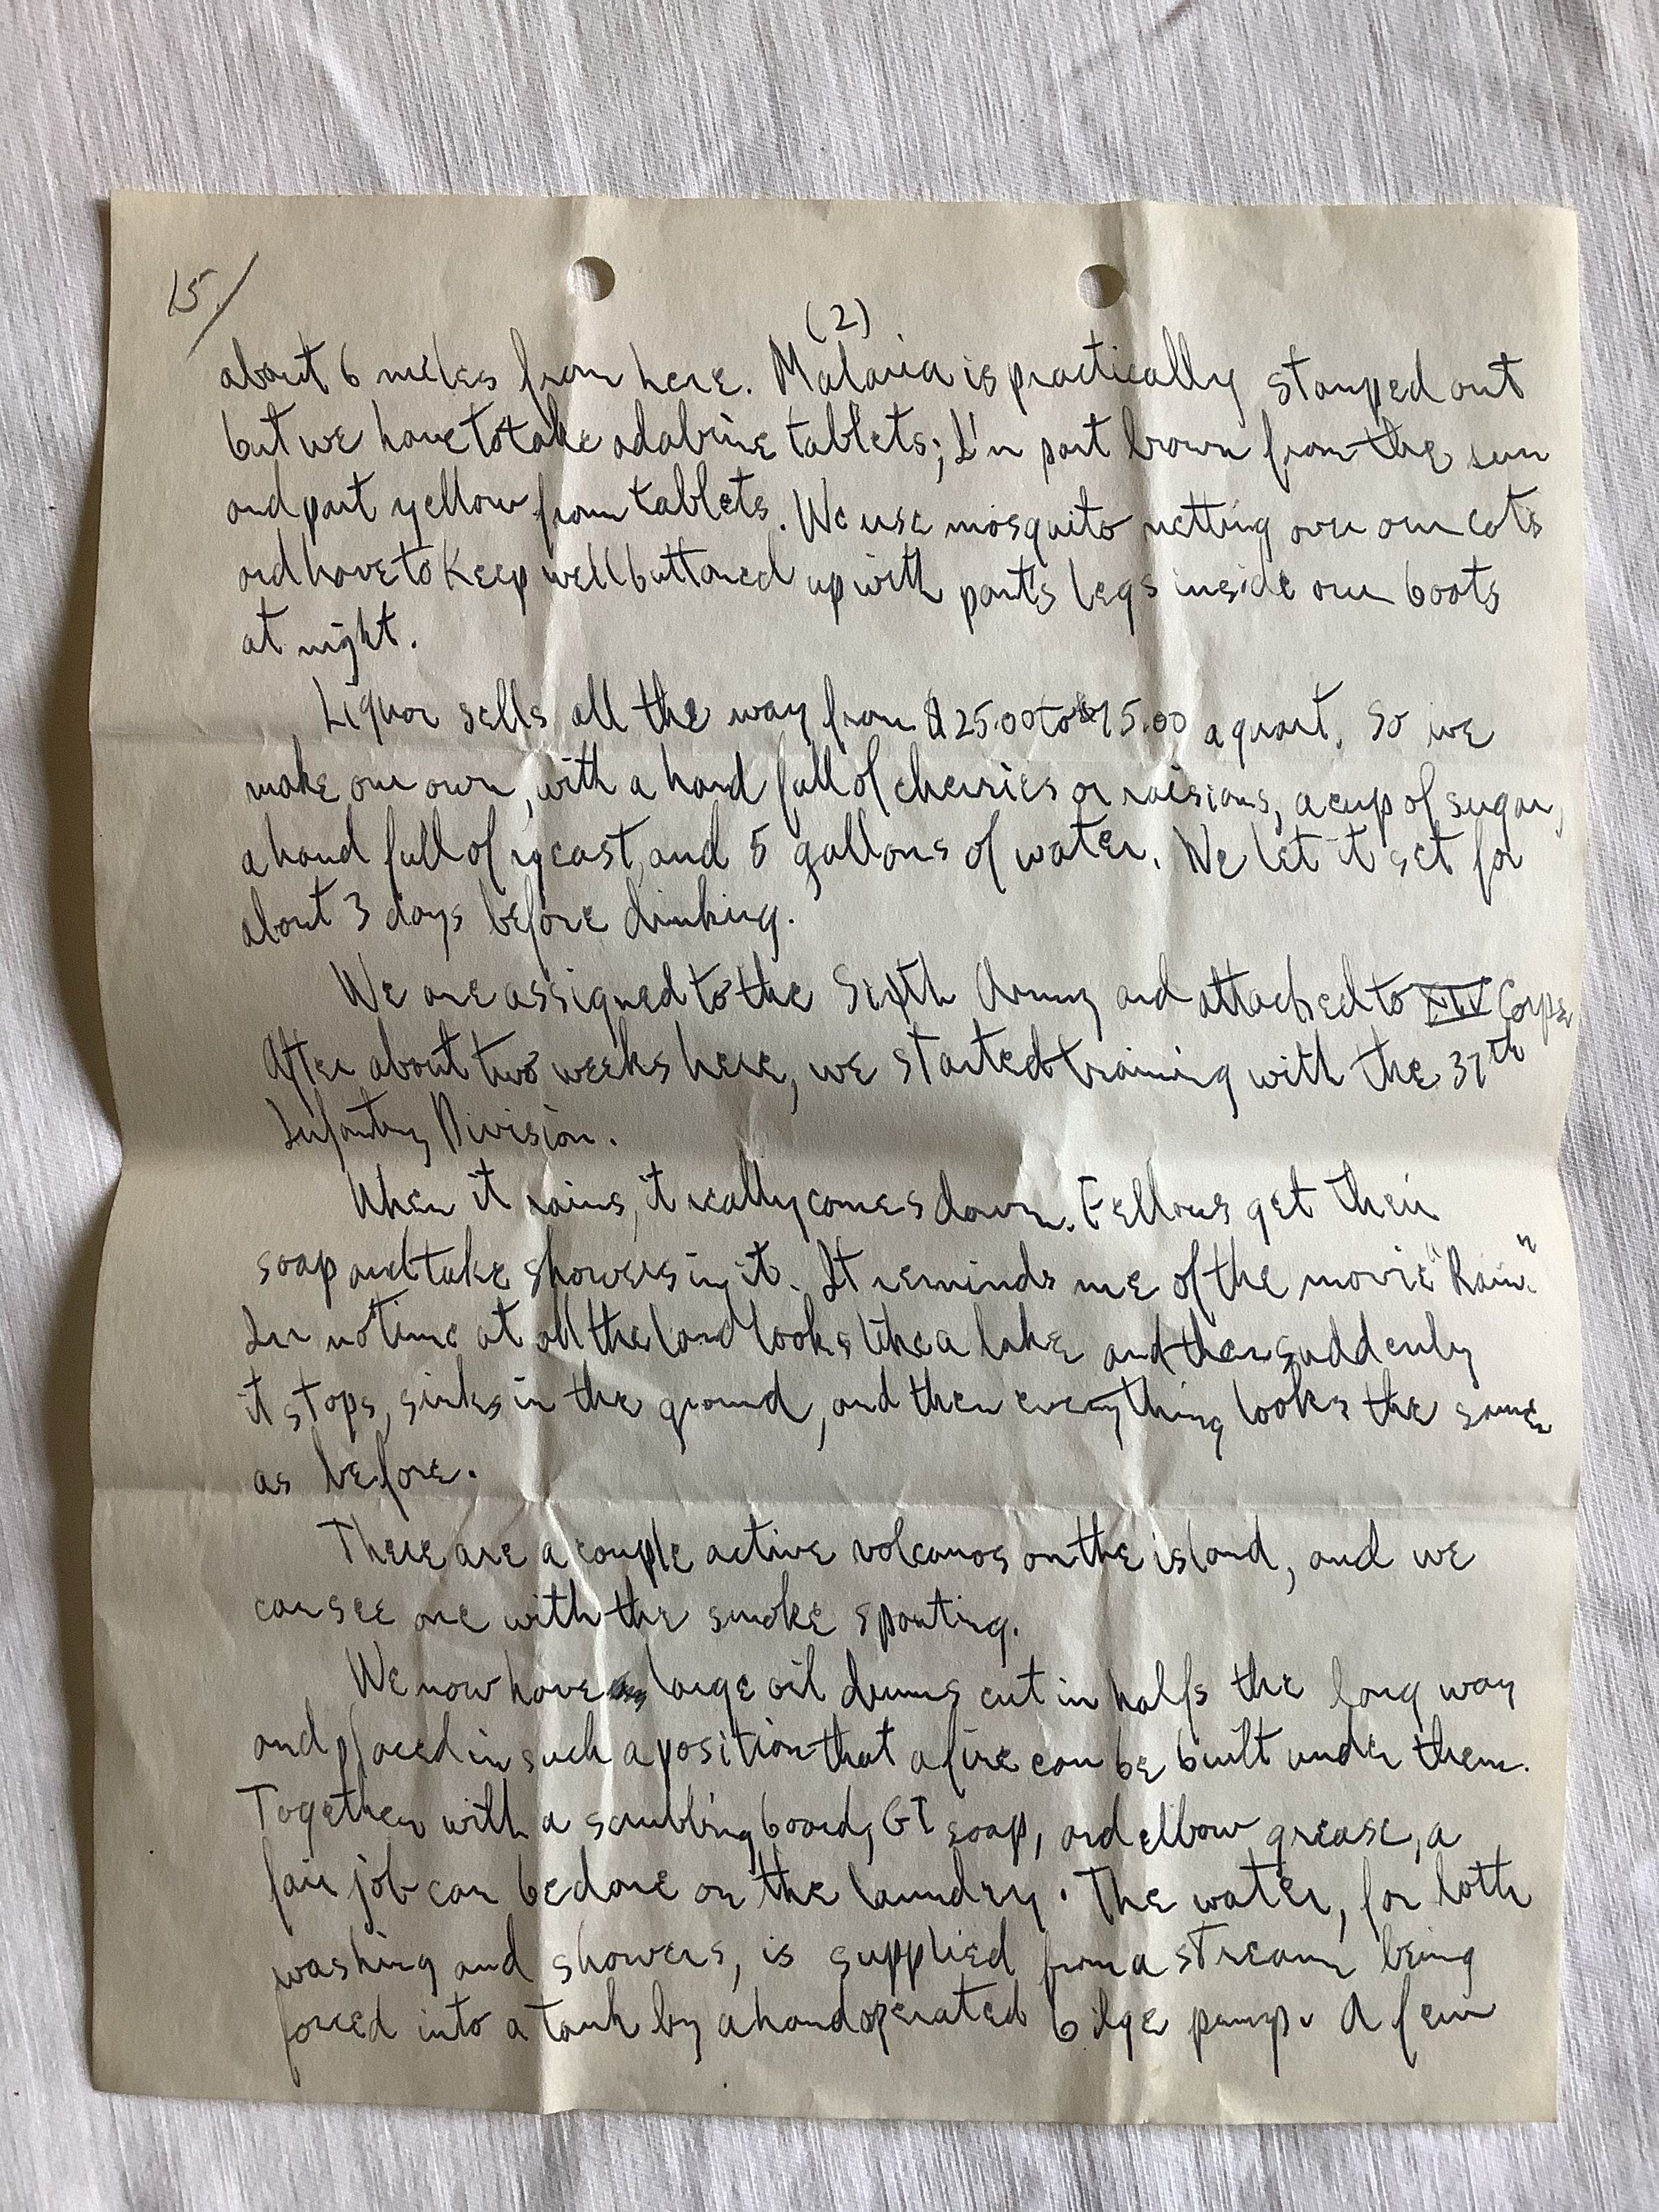 15/
(2)
about 6 miles from here. Malaria is practically stamped out
but we have to take adabrine tablets; I'm part brown from the sun
and part yellow from tablets. We use mosquito netting over our cots
and have to keep well buttoned up with pants legs inside our boots
at night.
Liquor sells all the way from $25.00 to $75.00 a quart. So we
make our own, with a hand full of cherries or raisians, a cup of sugar,
a hand full of yeast, and 5 gallons of water. We let it set for
about 3 days before drinking.
We are assigned to the Sixth Army and attached to XIV Corps
After about two weeks here, we started training with the 37th
Infantry Division.
When it rains, it really comes down. Fellows get their
soap and take showers in it. It reminds me of the movie "Rain."
In no time at all the land looks like a lake and then suddenly
it stops, sinks in the ground, and then everything looks the same
as before.
There are a couple active volcanos on the island, and we
can see one with the smoke spouting.
We now have large oil drums cut in halfs the long way
and placed in such a position that a fire can be built under them.
Together with a scrubbing board, GI soap, and elbow grease, a
fair job can be done on the laundry. The water, for both
washing and showers, is supplied from a stream being
forced into a tank by a hand operated bilge pump. A few